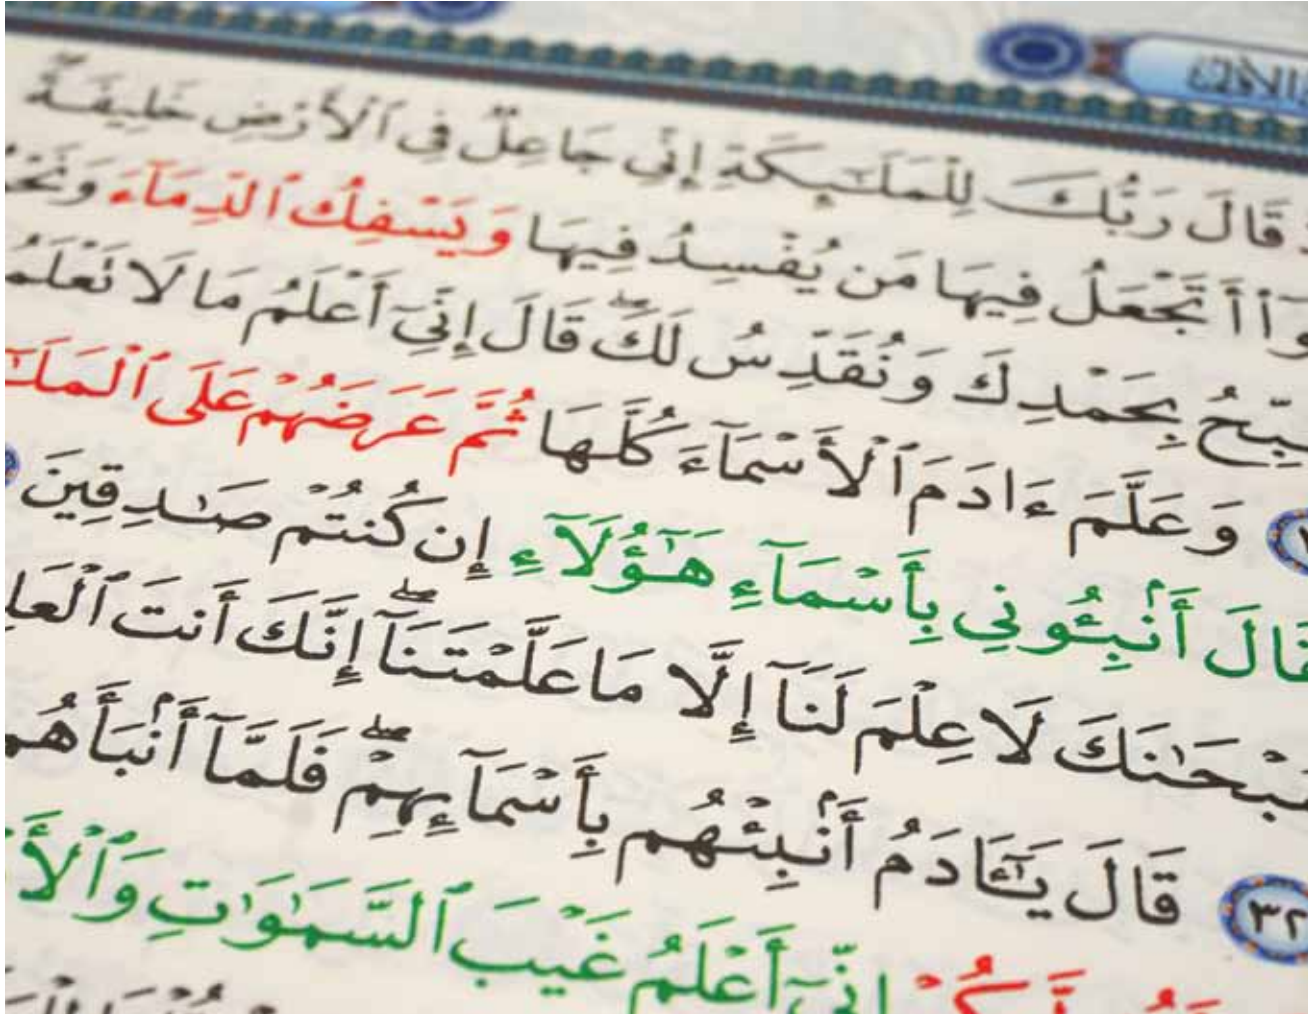 قَالَ رَبُّكَ لِلْمَلَـٰٓئِكَةِ إِنِّي جَاعِلٌ فِي ٱلْأَرْضِ خَلِيفَةً
أَتَجْعَلُ فِيهَا مَن يُفْسِدُ فِيهَا وَيَسْفِكُ ٱلدِّمَآءَ وَنَحْ
سَبِّحُ بِحَمْدِكَ وَنُقَدِّسُ لَكَ ۖ قَالَ إِنِّيٓ أَعْلَمُ مَا لَا تَعْلَمُ
وَعَلَّمَ ءَادَمَ ٱلْأَسْمَآءَ كُلَّهَا ثُمَّ عَرَضَهُمْ عَلَى ٱلْمَلَـٰ
قَالَ أَنۢبِـُٔونِي بِأَسْمَآءِ هَـٰٓؤُلَآءِ إِن كُنتُمْ صَـٰدِقِينَ
سُبْحَـٰنَكَ لَا عِلْمَ لَنَآ إِلَّا مَا عَلَّمْتَنَآ ۖ إِنَّكَ أَنتَ ٱلْعَلِ
٣٢ قَالَ يَـٰٓـَٔادَمُ أَنۢبِئْهُم بِأَسْمَآئِهِمْ ۖ فَلَمَّآ أَنۢبَأَهُم
إِنِّيٓ أَعْلَمُ غَيْبَ ٱلسَّمَـٰوَٰتِ وَٱلْأَ